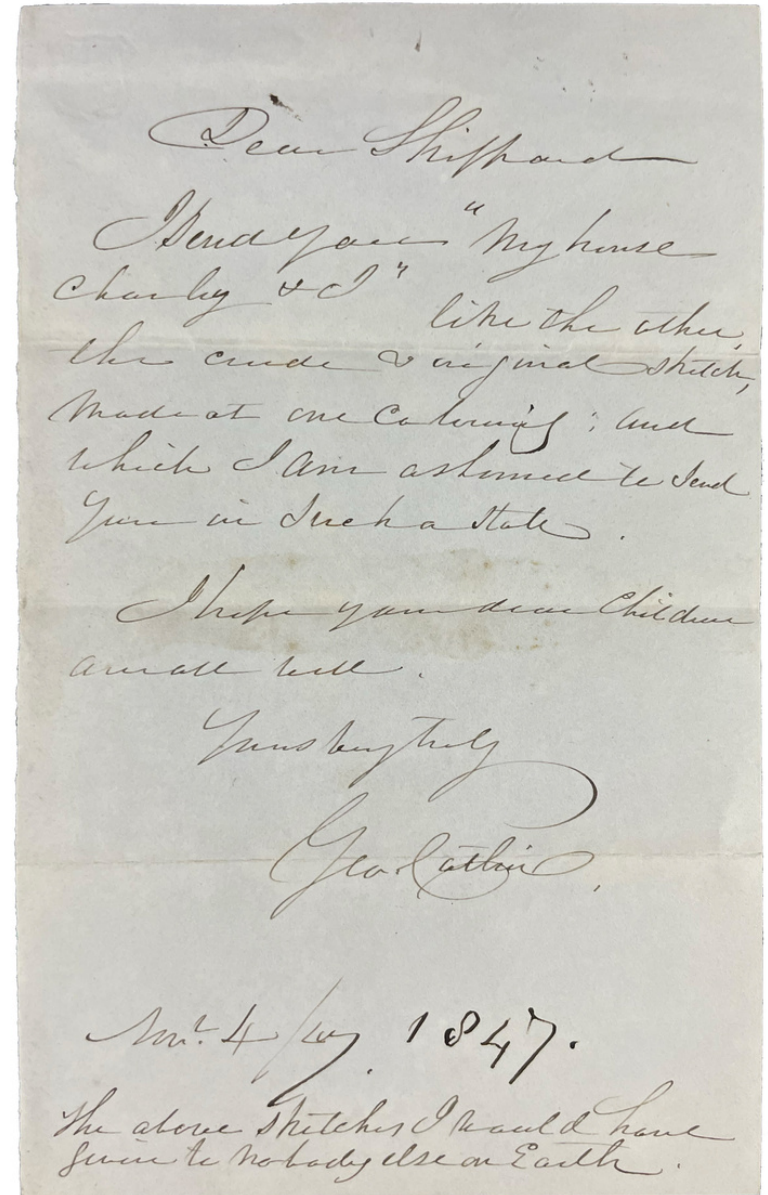 Dear Shippard
I Send you "My horse
Charley & I" like the other,
the crude & original sketch,
made at one colouring; and
which I am ashamed to send
you in such a state.
I hope your dear Children
are all well.
Yours very truly
Geo. Catlin
Novr. 4/47. 1847.
The above sketches I would have
given to nobody else on Earth.